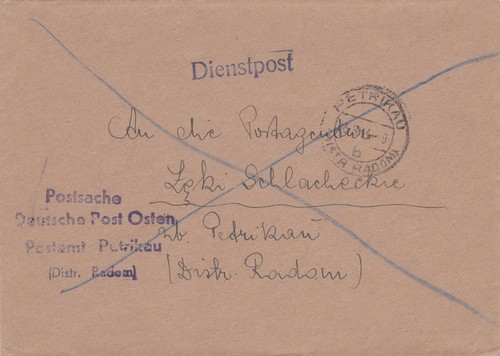 Dienstpost
PETRIKAU
b
(DISTR. RADOM)
An die Postagentur
Łęki Schlacheckie
üb. Petrikau
(Distr. Radom)
Postsache
Deutsche Post Osten
Postamt Petrikau
(Distr. Radom)